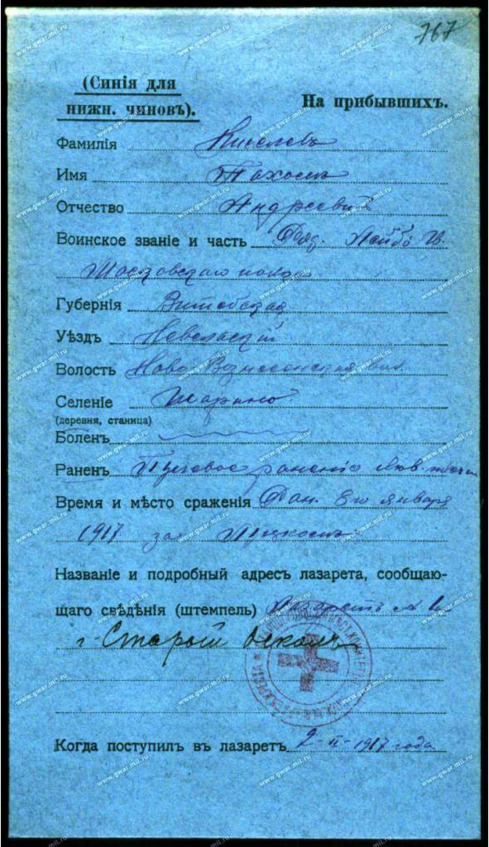 767
(Синія для
нижн. чиновъ).
На прибывшихъ.
Фамилія Киселевъ
Имя Пахомъ
Отчество Андреевичъ
Воинское званіе и часть Ряд. Лейбъ Гв.
Московскаго полка
Губернія Витебская
Уѣздъ Невельскій
Волость Ново
Селеніе
(деревня, станица)
Боленъ
Раненъ Пулевое раненіе лѣв.
Время и мѣсто сраженія Ран. 8го января
1917 за Луцкомъ
Названіе и подробный адресъ лазарета, сообщаю-
щаго свѣдѣнія (штемпель) Лазаретъ № 1
г. Старый Осколъ
Когда поступилъ въ лазаретъ 2-II-1917 года
www.gwar.mil.ru